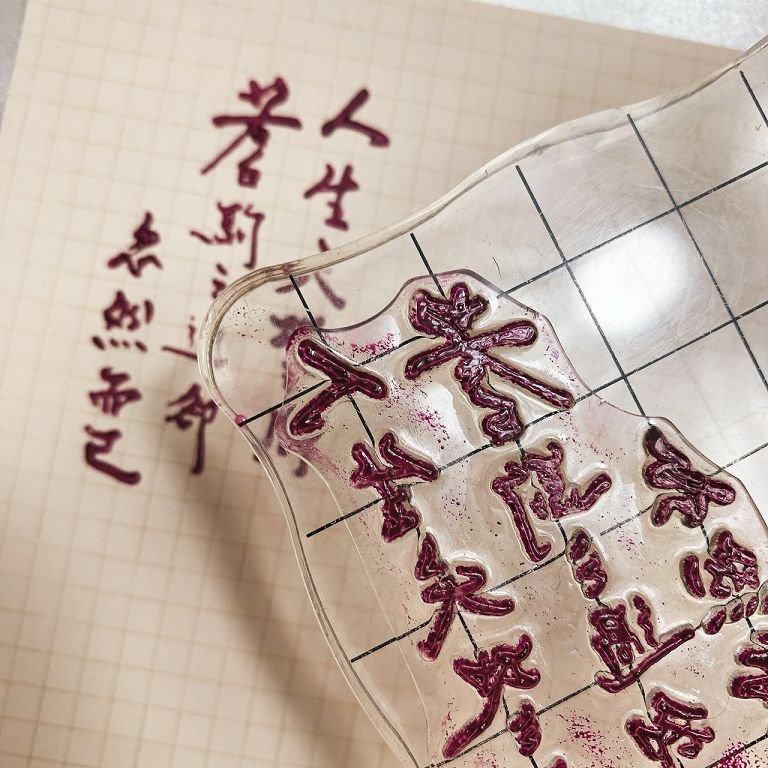 人生天地之間
若白駒之過郤
忽然而已